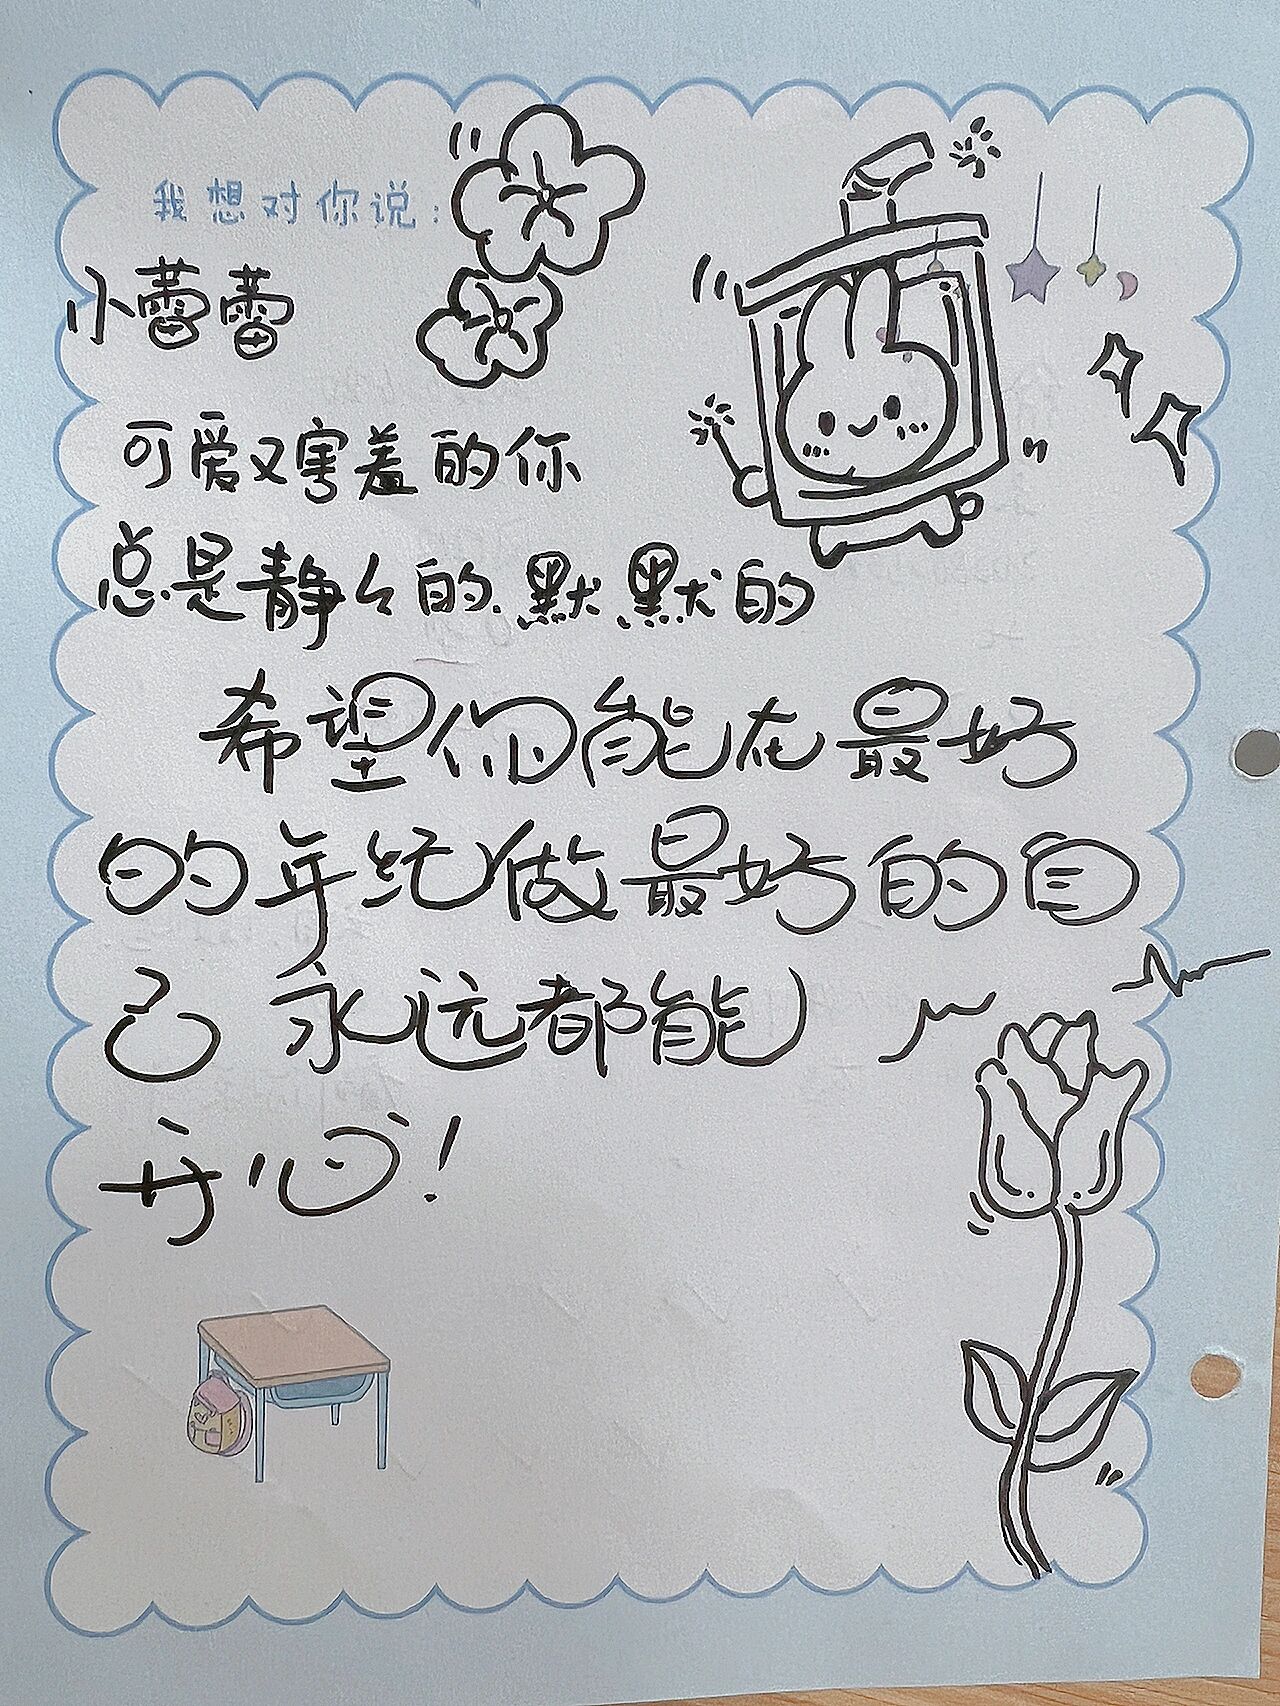 我想对你说:
小蕾蕾
可爱又害羞的你
总是静々的.默默的
希望你能在最好
的年纪做最好的自
己 永远都能
开心!